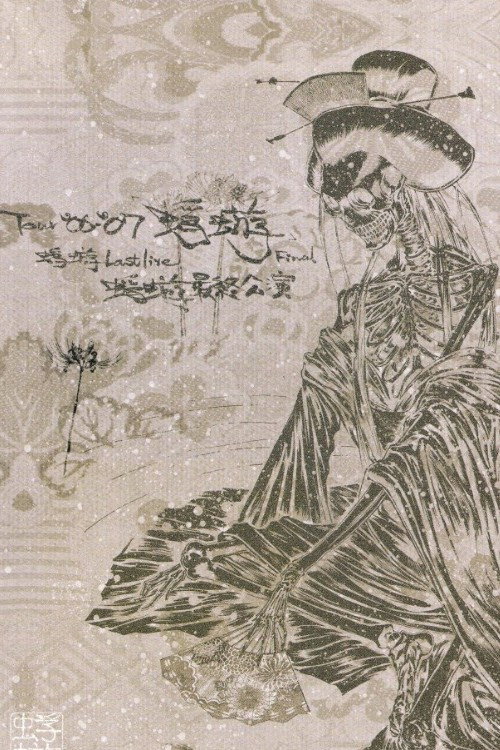 Tour '06-'07 蜉蝣
蜉蝣 Last live Final
蜉蝣最終公演